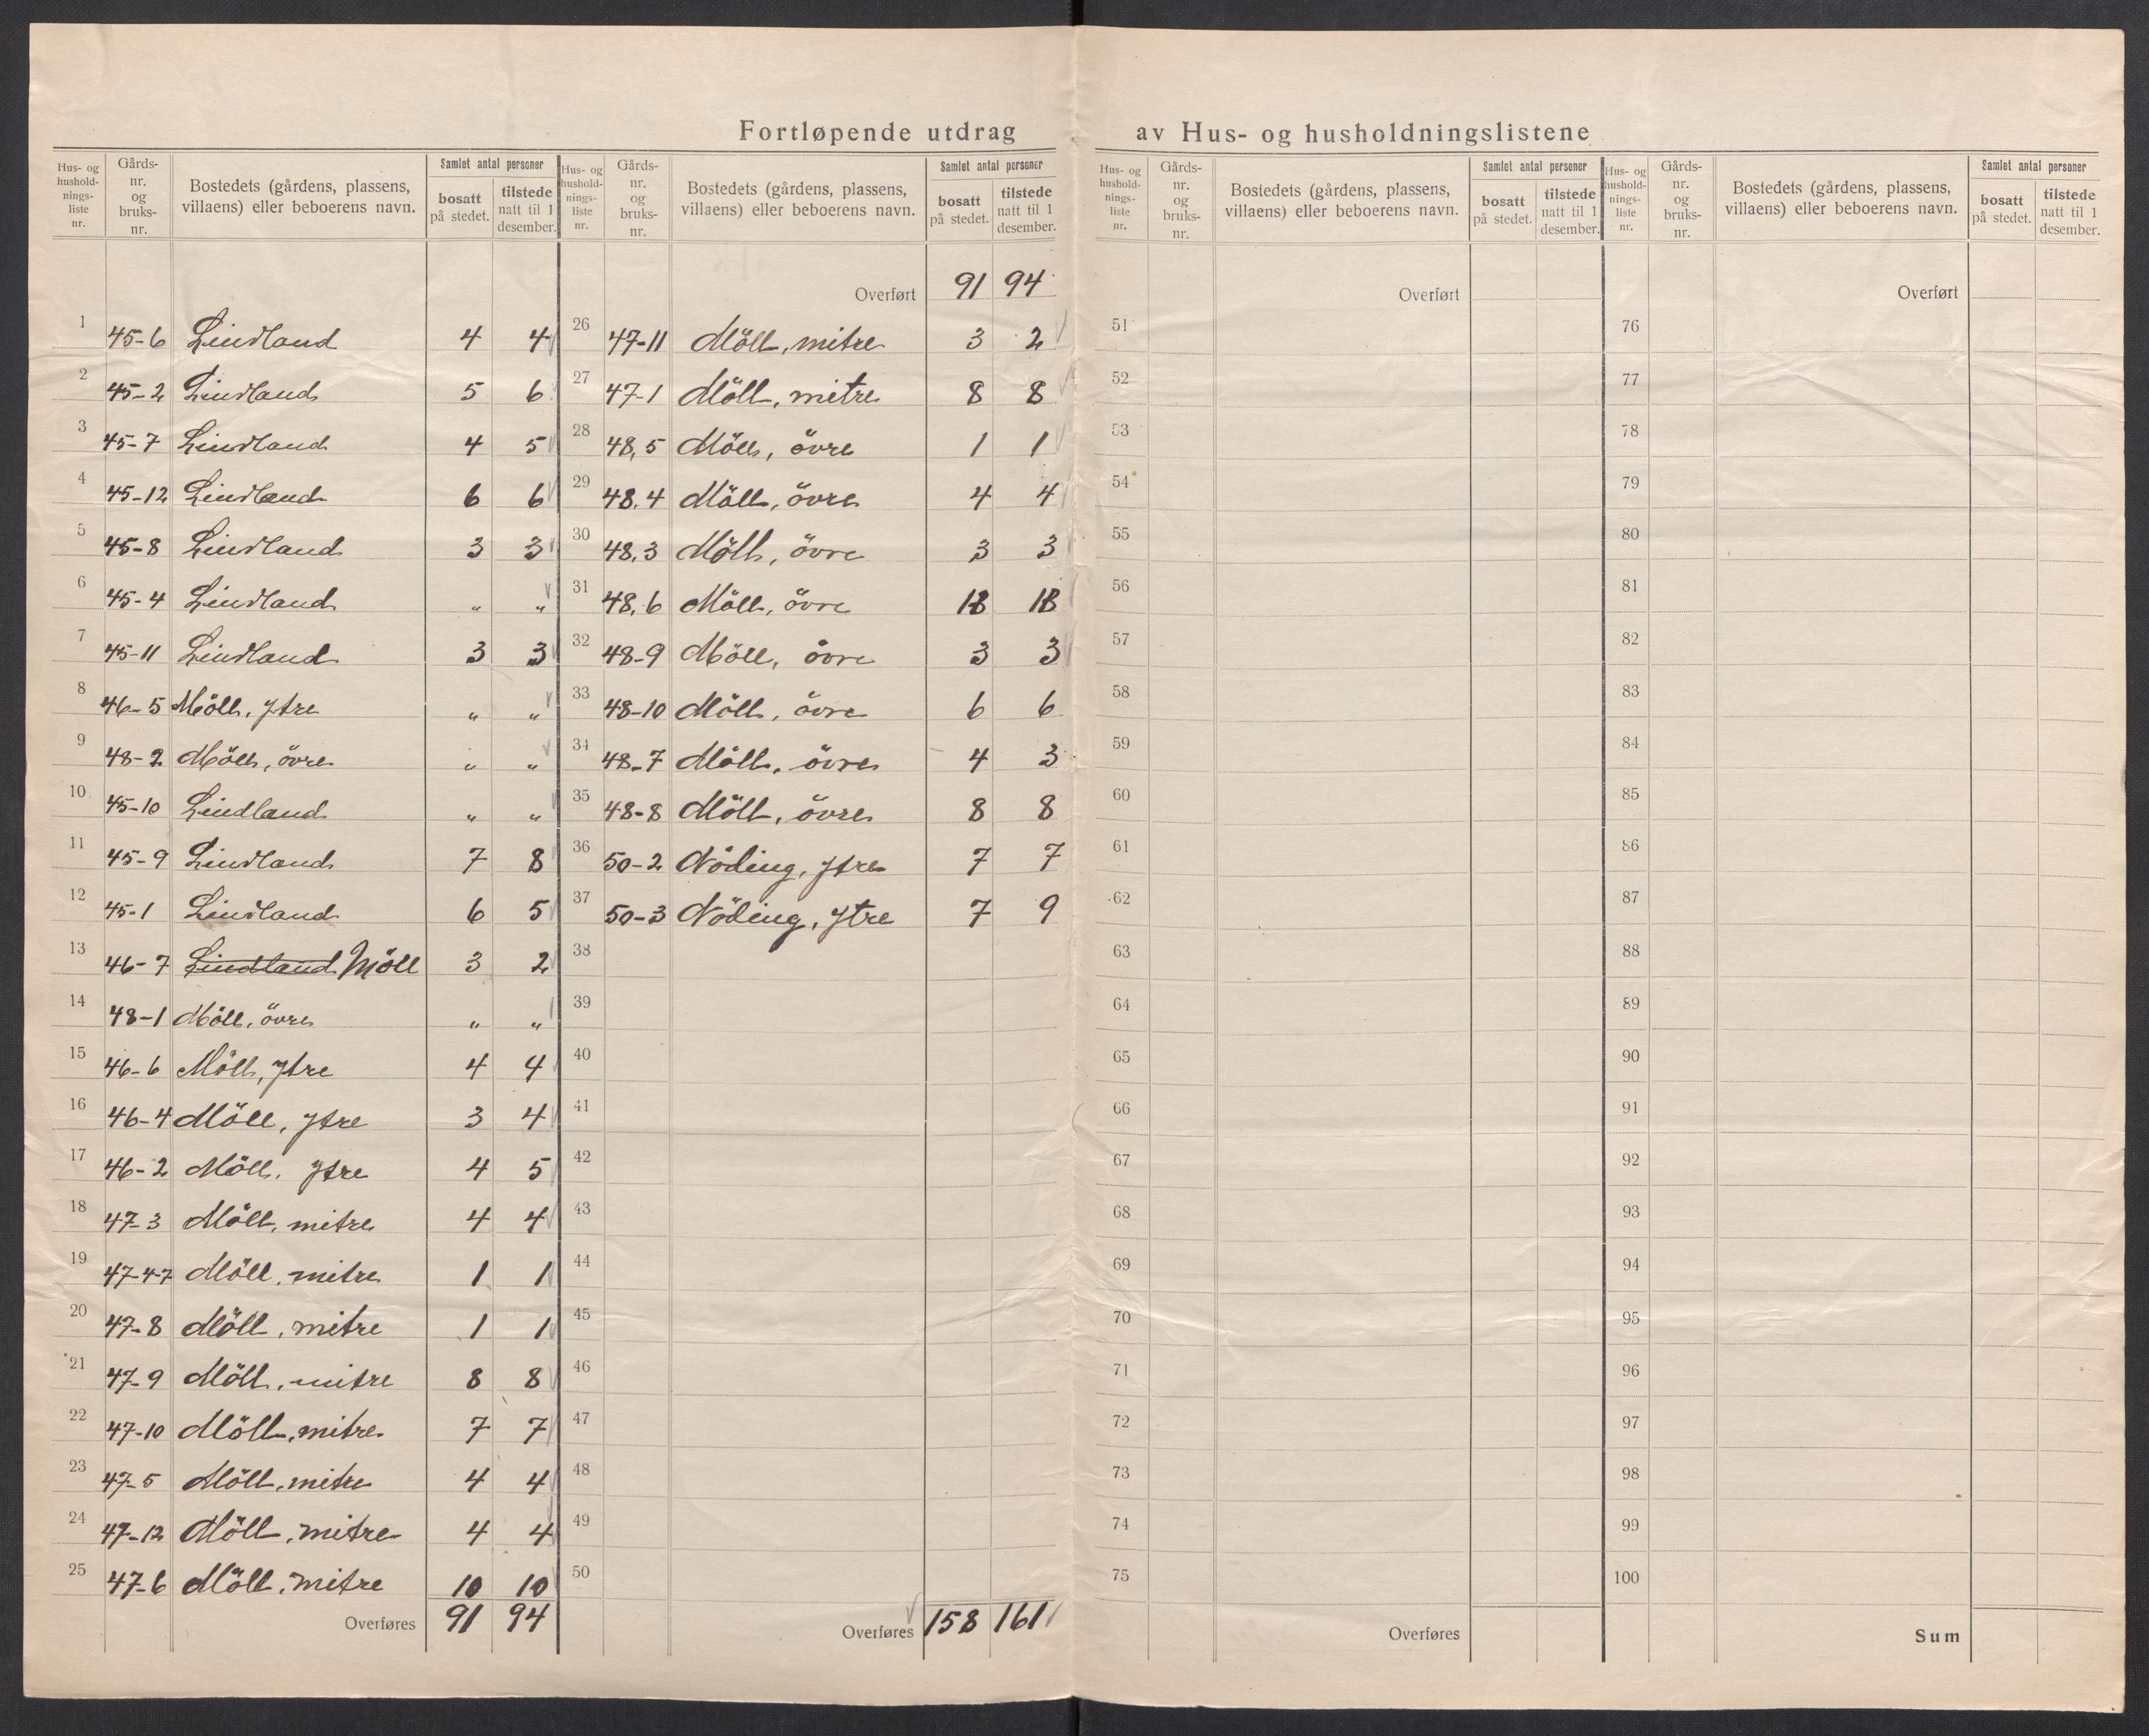 Fortløpende utdrag av Hus- og husholdningslistene
Hus- og husholdnings-liste nr. | Gårds-nr. og bruks-nr. | Bostedets (gårdens, plassens, villaens) eller beboerens navn. | Samlet antal personer | bosatt på stedet. | tilstede natt til 1 desember.
1 45-6 Lindland 4 4
2 45-2 Lindland 5 6
3 45-7 Lindland 4 5
4 45-12 Lindland 6 6
5 45-8 Lindland 3 3
6 45-4 Lindland „ „
7 45-11 Lindland 3 3
8 46-5 Möll, ytre „ „
9 48-2 Möll, övre „ „
10 45-10 Lindland „ „
11 45-9 Lindland 7 8
12 45-1 Lindland 6 5
13 46-7 Lindland Möll 3 2
14 48-1 Möll, övre „ „
15 46-6 Möll, ytre 4 4
16 46-4 Möll, ytre 3 4
17 46-2 Möll, ytre 4 5
18 47-3 Möll, mitre 4 4
19 47-4-7 Möll, mitre 1 1
20 47-8 Möll, mitre 1 1
21 47-9 Möll, mitre 8 8
22 47-10 Möll, mitre 7 7
23 47-5 Möll, mitre 4 4
24 47-12 Möll, mitre 4 4
25 47-6 Möll, mitre 10 10
Overføres 91 94
Hus- og husholdnings-liste nr. | Gårds-nr. og bruks-nr. | Bostedets (gårdens, plassens, villaens) eller beboerens navn. | Samlet antal personer | bosatt på stedet. | tilstede natt til 1 desember.
Overført 91 94
26 47-11 Möll, mitre 3 2
27 47-1 Möll, mitre 8 8
28 48,5 Möll, övre 1 1
29 48,4 Möll, övre 4 4
30 48,3 Möll, övre 3 3
31 48,6 Möll, övre 13 13
32 48-9 Möll, övre 3 3
33 48-10 Möll, övre 6 6
34 48-7 Möll, övre 4 3
35 48-8 Möll, övre 8 8
36 50-2 Nöding, ytre 7 7
37 50-3 Nöding, ytre 7 9
38
39
40
41
42
43
44
45
46
47
48
49
50
Overføres 158 161
Hus- og husholdnings-liste nr. | Gårds-nr. og bruks-nr. | Bostedets (gårdens, plassens, villaens) eller beboerens navn. | Samlet antal personer | bosatt på stedet. | tilstede natt til 1 desember.
Overført
51
52
53
54
55
56
57
58
59
60
61
62
63
64
65
66
67
68
69
70
71
72
73
74
75
Overføres
Hus- og husholdnings-liste nr. | Gårds-nr. og bruks-nr. | Bostedets (gårdens, plassens, villaens) eller beboerens navn. | Samlet antal personer | bosatt på stedet. | tilstede natt til 1 desember.
Overført
76
77
78
79
80
81
82
83
84
85
86
87
88
89
90
91
92
93
94
95
96
97
98
99
100
Sum